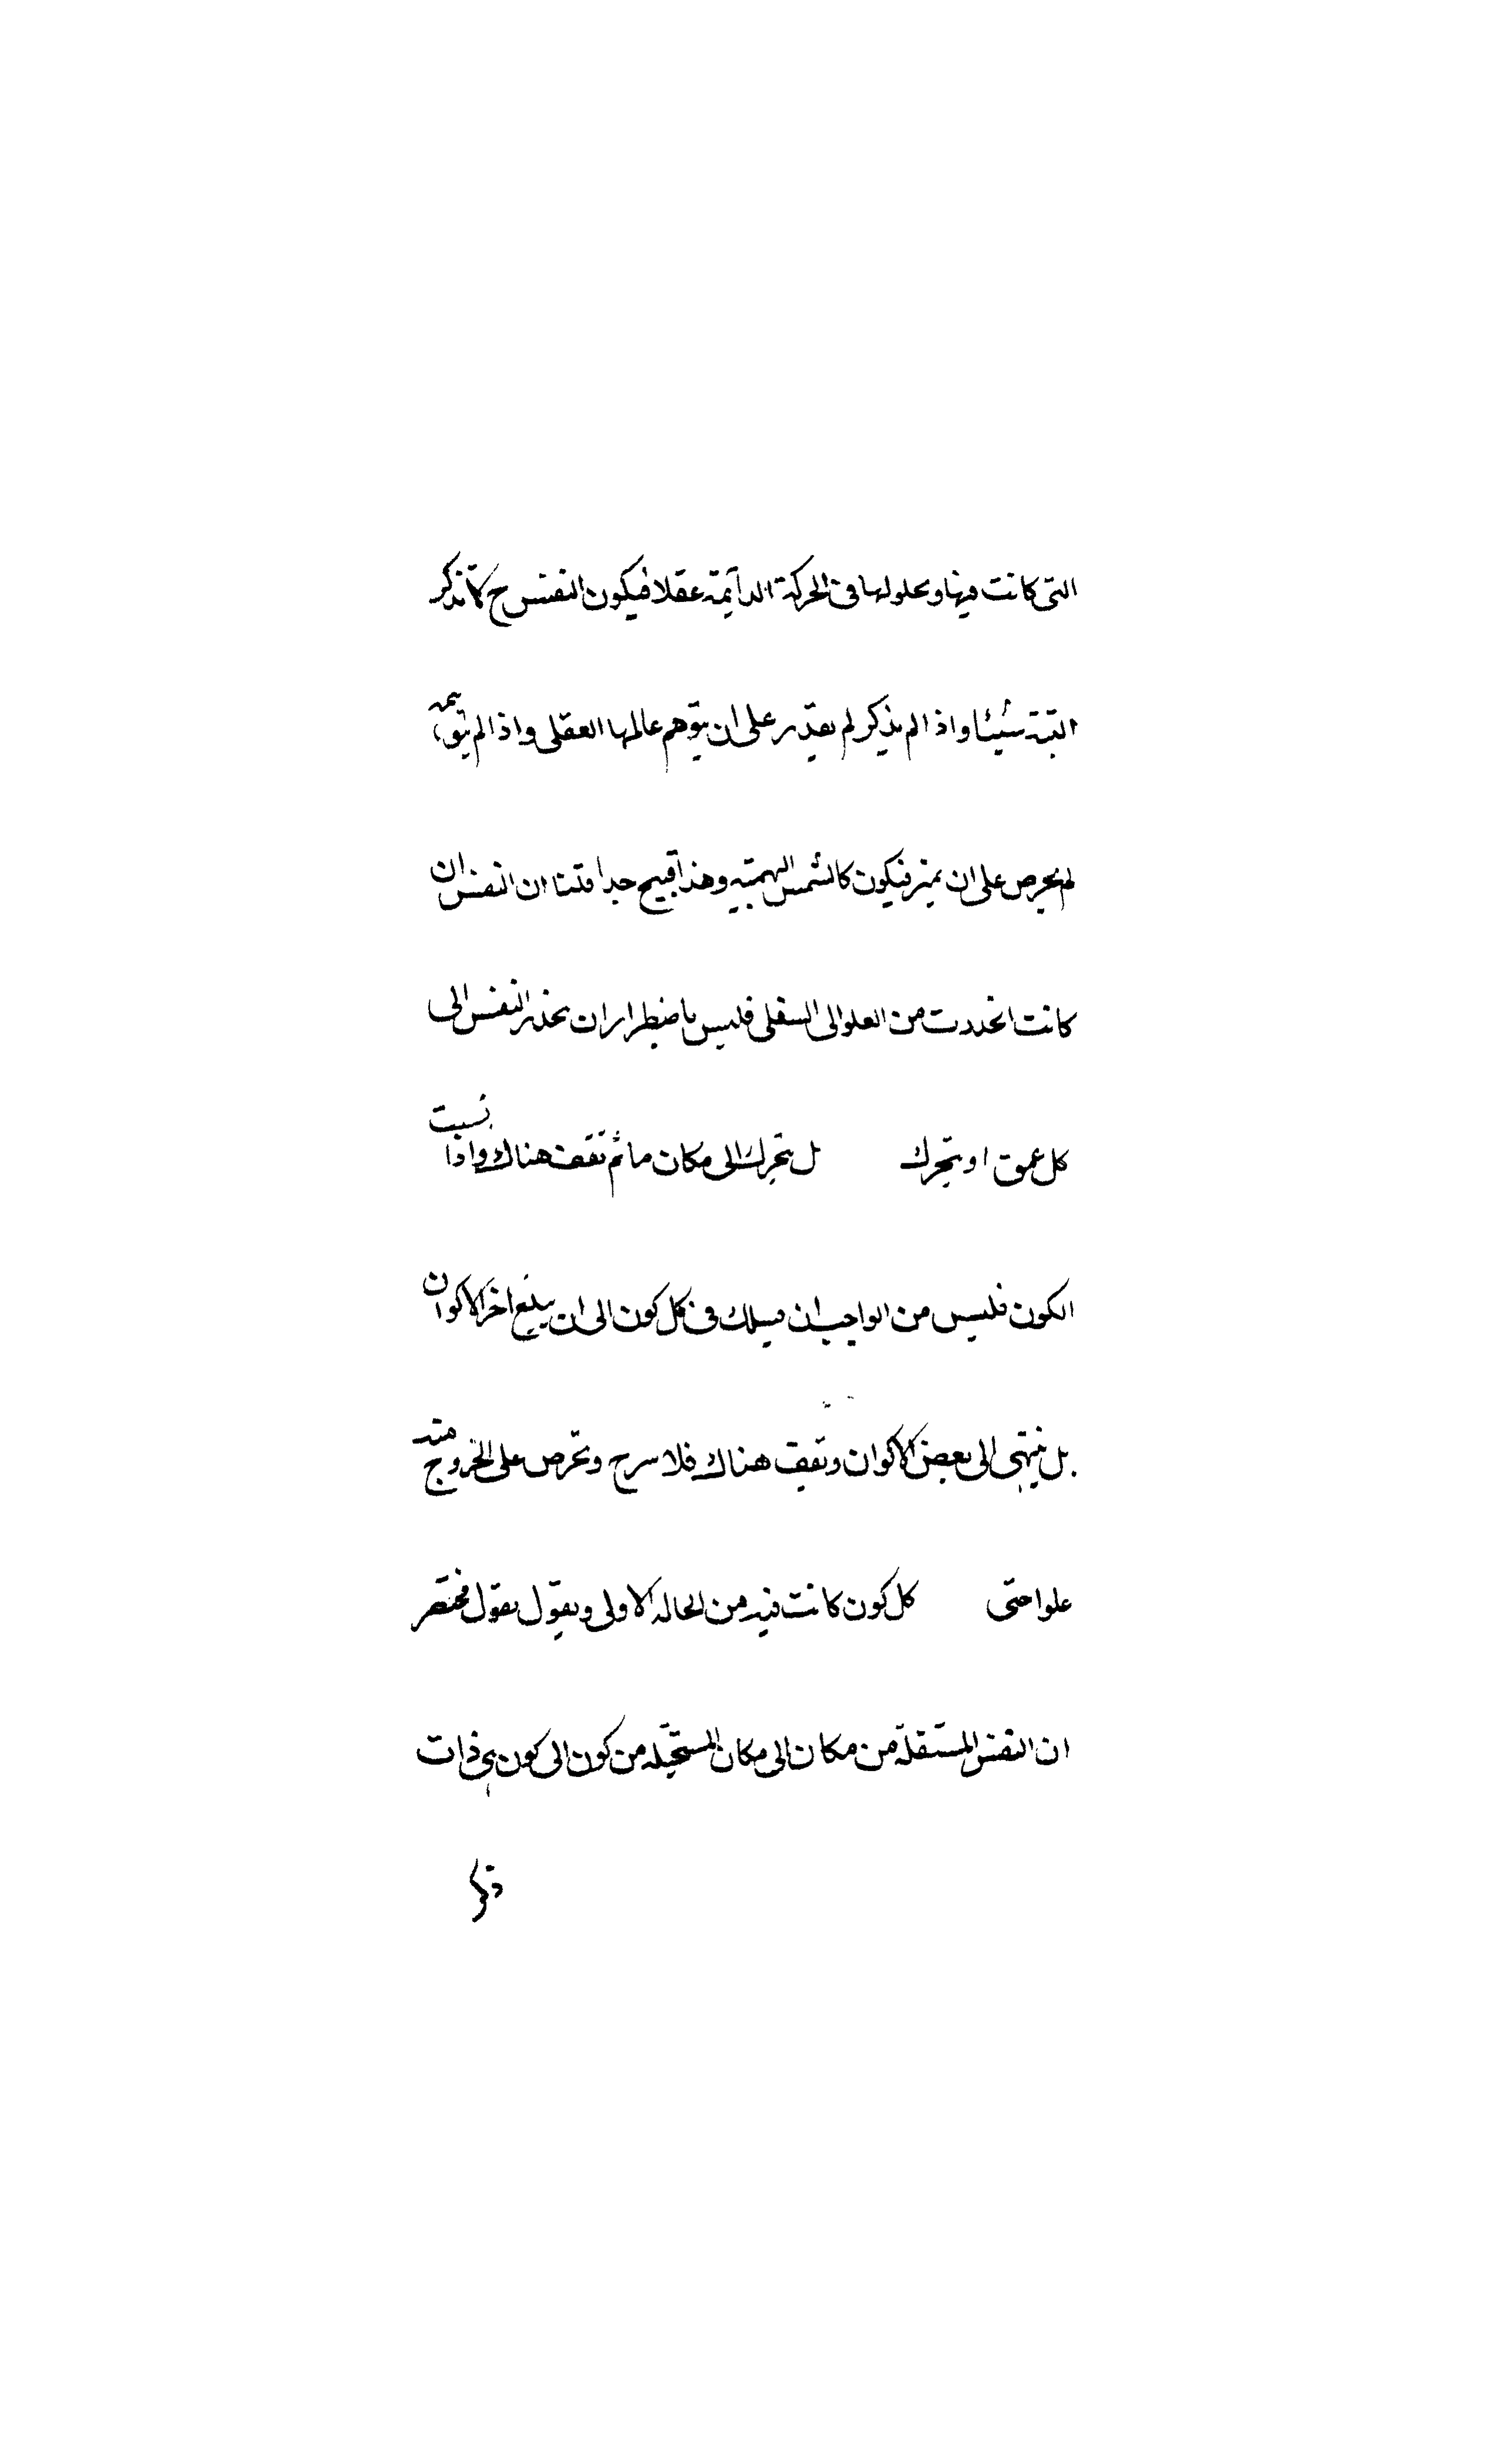 التى كانت فيها وبحلولها فى الحركة الدآيمة عقلا فيكون النفس ح لا تذكر
البتة شيئا واذا لم يذكر لم يقدر على ان يتوهم عالمها العقلى واذا لم يتوهمه
لم يحرص على ان يميز فيكون كالشمس البهمية وهذا قبيح جدا قلنا ان النفس ان
كانت انحدرت من العلو الى السفلى فليس باضطرار ان تحذر النفس الى
كل عمق او يتحرك ل يتحرك الى مكان ما ثم تقف هناك واذا نسبت
الكون فليس من الواجب ان يسلك فى كل كون الى ان يبلغ اخر الاكوان
بل ينتهى الى بعض الاكوان وتقف هناك فلا سرح وتحرص على الخروج منه
علوا حتى كل كون كانت فيه من الحالة الاولى ويقول بقول مختصر
ان النفس المستقلة من مكان الى مكان المستحيلة من كون الى كون هى ذات
ذكر